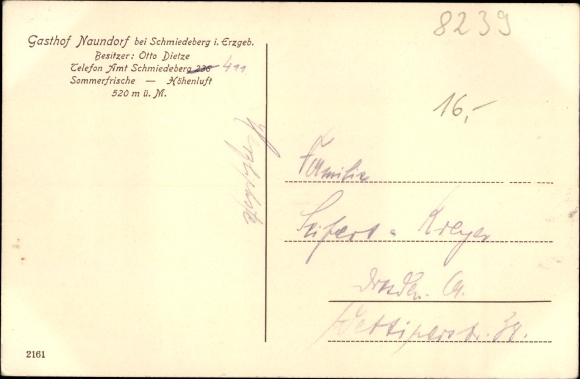 8239
Gasthof Naundorf bei Schmiedeberg i. Erzgeb.
Besitzer: Otto Dietze
Telefon Amt Schmiedeberg 236 411
Sommerfrische — Höhenluft
520 m ü. M.
16,-
Familie
Seifert u
Dresden. A.
Wettinerstr. 39.
2161